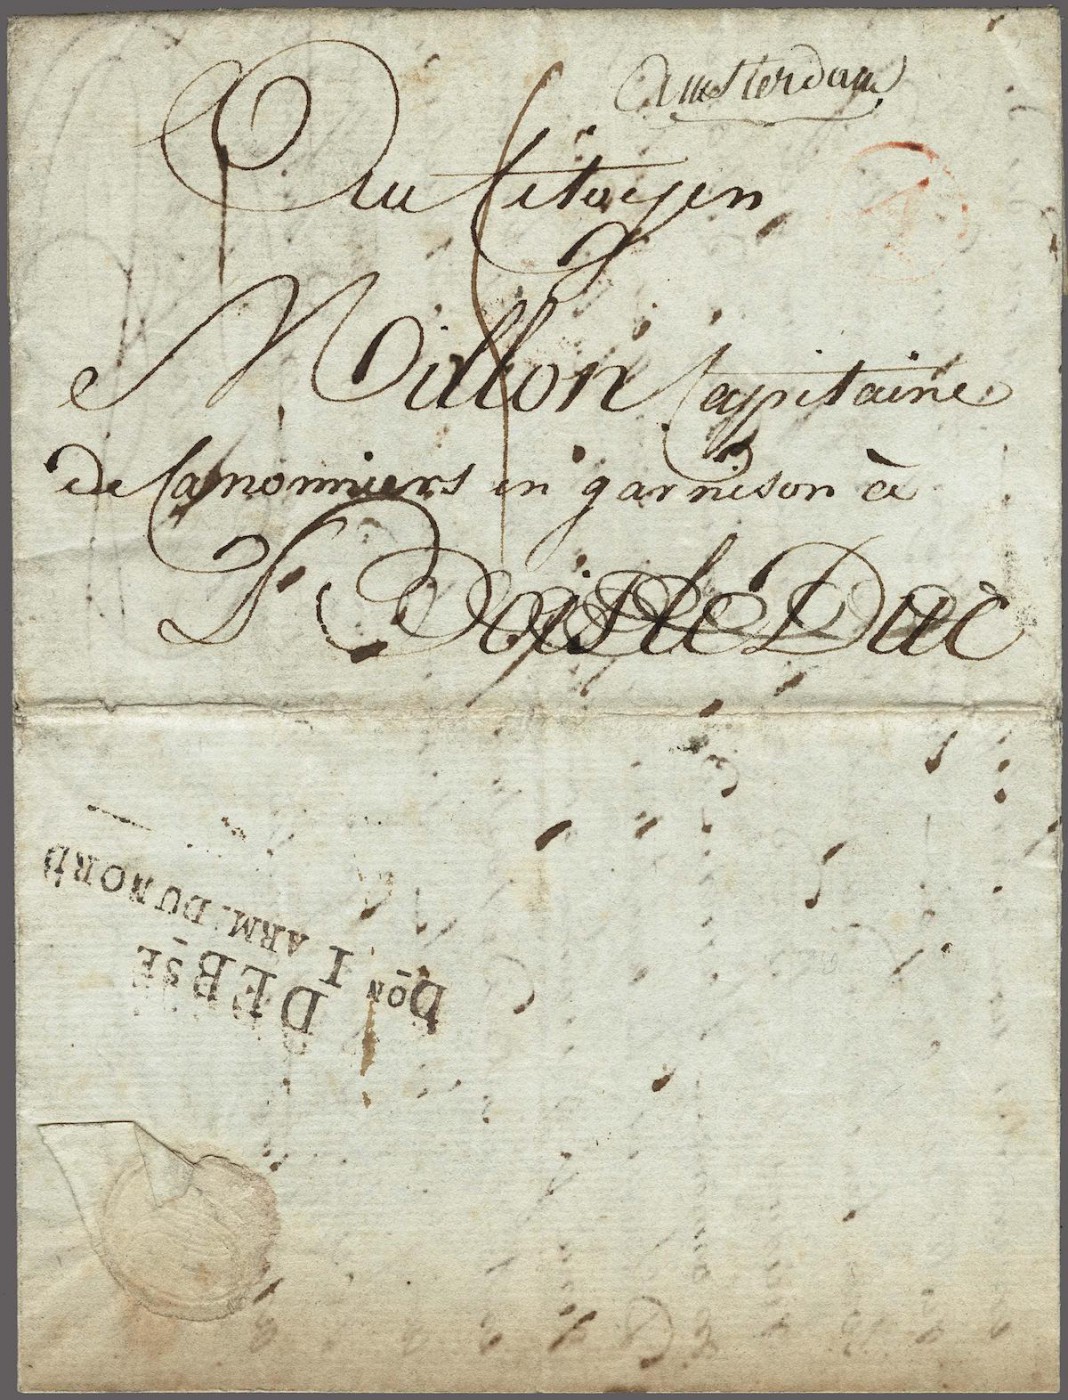 Amsterdam
Au Citoyen
Millon Capitaine
de Canonniers en garnison à
Bois le Duc
DEB SE
Don I ARM. DU NORD